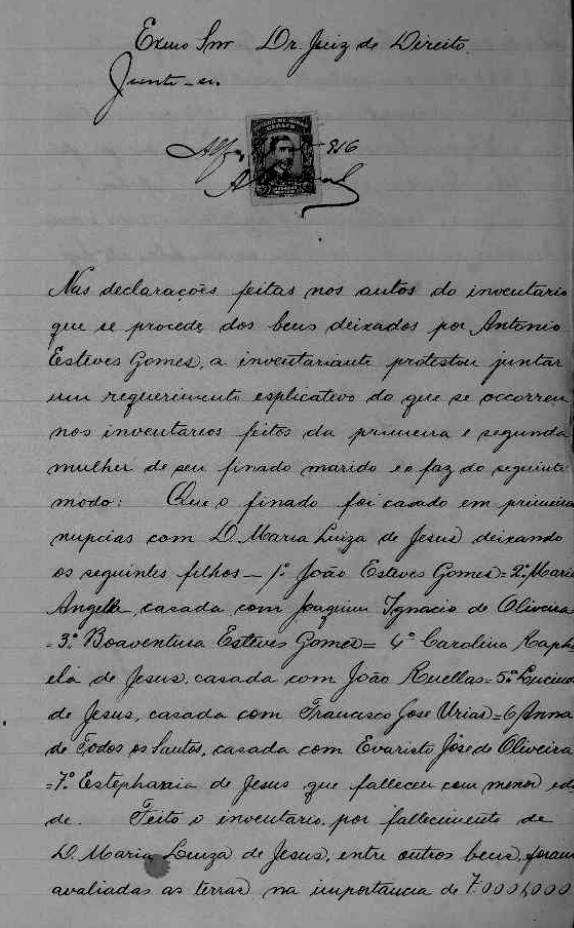 Exmo Snr Dr. Juiz de Direito.
Junte-se.
Alf 916
Nas declarações feitas nos autos do inventario
que se procede dos bens deixados por Antonio
Esteves Gomes, a inventariante protestou juntar
um requerimento esplicativo do que se occorreu
nos inventarios feitos da primeira e segunda
mulher de seu finado marido e o faz do seguinte
modo: Que o finado foi casado em primeira
nupcias com D. Maria Luiza de Jesus deixando
os seguintes filhos — 1º João Esteves Gomes = 2º Maria
Angella, casada com Joaquim Ignacio de Oliveira
= 3º Boaventura Esteves Gomes = 4º Carolina Raph
ela de Jesus, casada com João Ruellas = 5º Lucind
de Jesus, casada com Francisco José Urias = 6 Anna
de Todos os Santos, casada com Evaristo José de Oliveira
= 7º Estephania de Jesus que falleceu com menor eda
de. Feito o inventario, por fallecimento de
D. Maria Luiza de Jesus, entre outros bens, foram
avaliadas as terras na importancia de 7:000$000